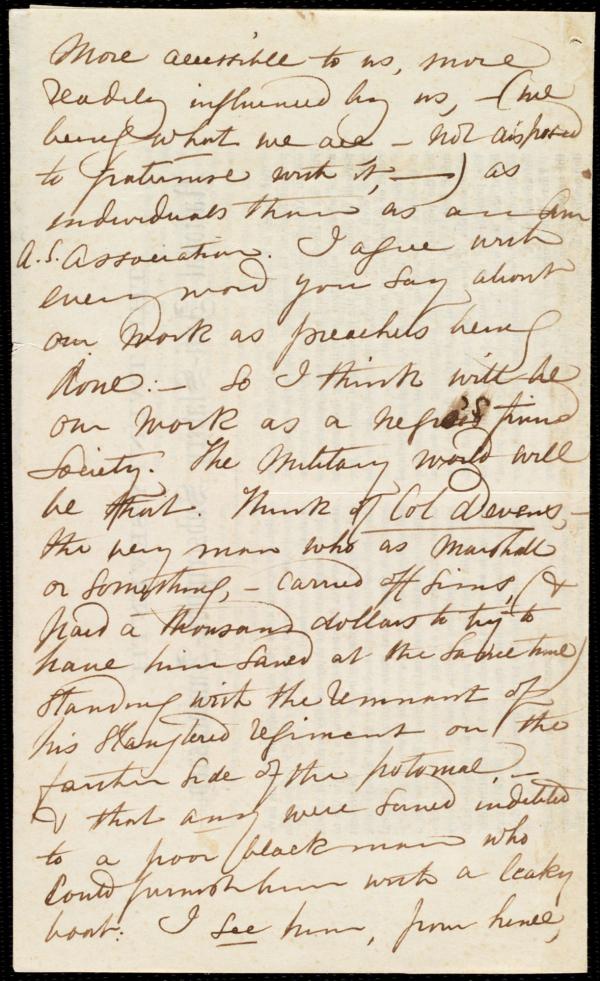 More accessible to us, more
readily influenced by us, – (we
being what we are – not disposed
to fraternise with it, —) as
individuals than as an Am
A.S. Association. I agree with
every word you say about
our work as preachers being
done: – So I think will be
our work as a negro's friend
Society. The Military world will
be that. Think of Col Devens, –
the very man who as Marshall
or something, – carried off Sims, (&
paid a thousand dollars to try to
have him saved at the same time)
standing with the remnant of
his slaughtered regiment on the
farther side of the potomac, –
& that any were saved indebted
to a poor black man who
could furnish him with a leaky
boat: I see him, from hence,